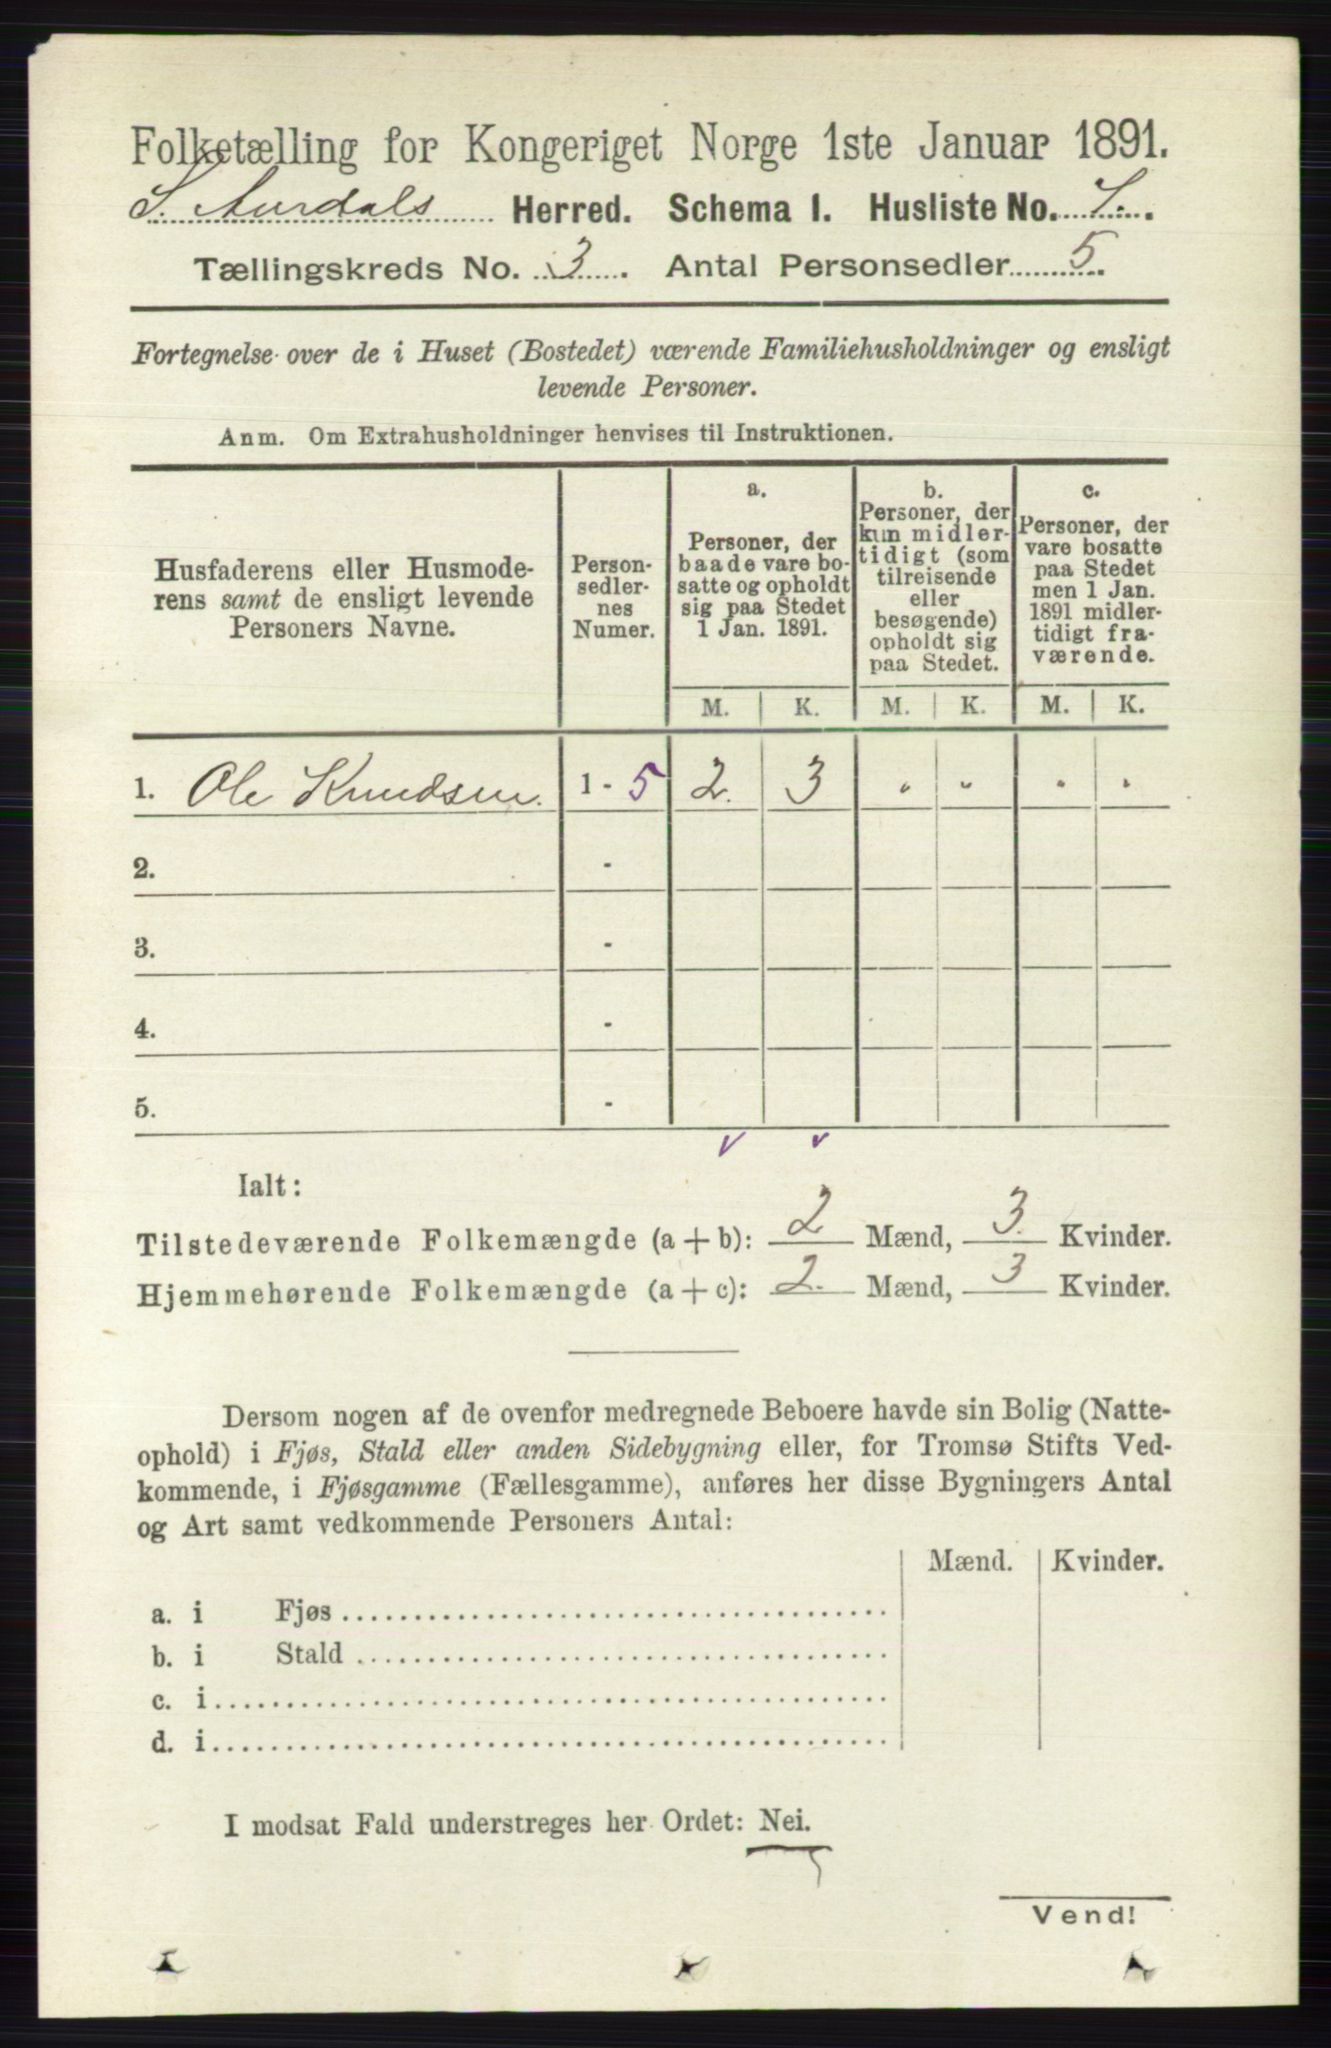 Folketælling for Kongeriget Norge 1ste Januar 1891.
S. Aurdals Herred. Schema I. Husliste No.
Tællingskreds No. 3. Antal Personsedler 5.
Fortegnelse over de i Huset (Bostedet) værende Familiehusholdninger og ensligt
levende Personer.
Anm. Om Extrahusholdninger henvises til Instruktionen.
Husfaderens eller Husmode-
rens samt de ensligt levende
Personers Navne.
Person-
sedler-
nes
Numer.
a.
Personer, der
baade vare bo-
satte og opholdt
sig paa Stedet
1 Jan. 1891.
b.
Personer, der
kun midler-
tidigt (som
tilreisende
eller
besøgende)
opholdt sig
paa Stedet.
c.
Personer, der
vare bosatte
paa Stedet
men 1 Jan.
1891 midler-
tidigt fra-
værende.
M. K. M. K. M. K.
1. Ole Knudsen. 1 - 5 2. 3 " " " "
2. -
3. -
4. -
5. -
Ialt:
Tilstedeværende Folkemængde (a + b): 2 Mænd, 3. Kvinder.
Hjemmehørende Folkemængde (a + c): 2. Mænd, 3 Kvinder.
Dersom nogen af de ovenfor medregnede Beboere havde sin Bolig (Natte-
ophold) i Fjøs, Stald eller anden Sidebygning eller, for Tromsø Stifts Ved-
kommende, i Fjøsgamme (Fællesgamme), anføres her disse Bygningers Antal
og Art samt vedkommende Personers Antal:
Mænd. Kvinder.
a. i Fjøs
b. i Stald
c. i
d. i
I modsat Fald understreges her Ordet: Nei.
Vend!